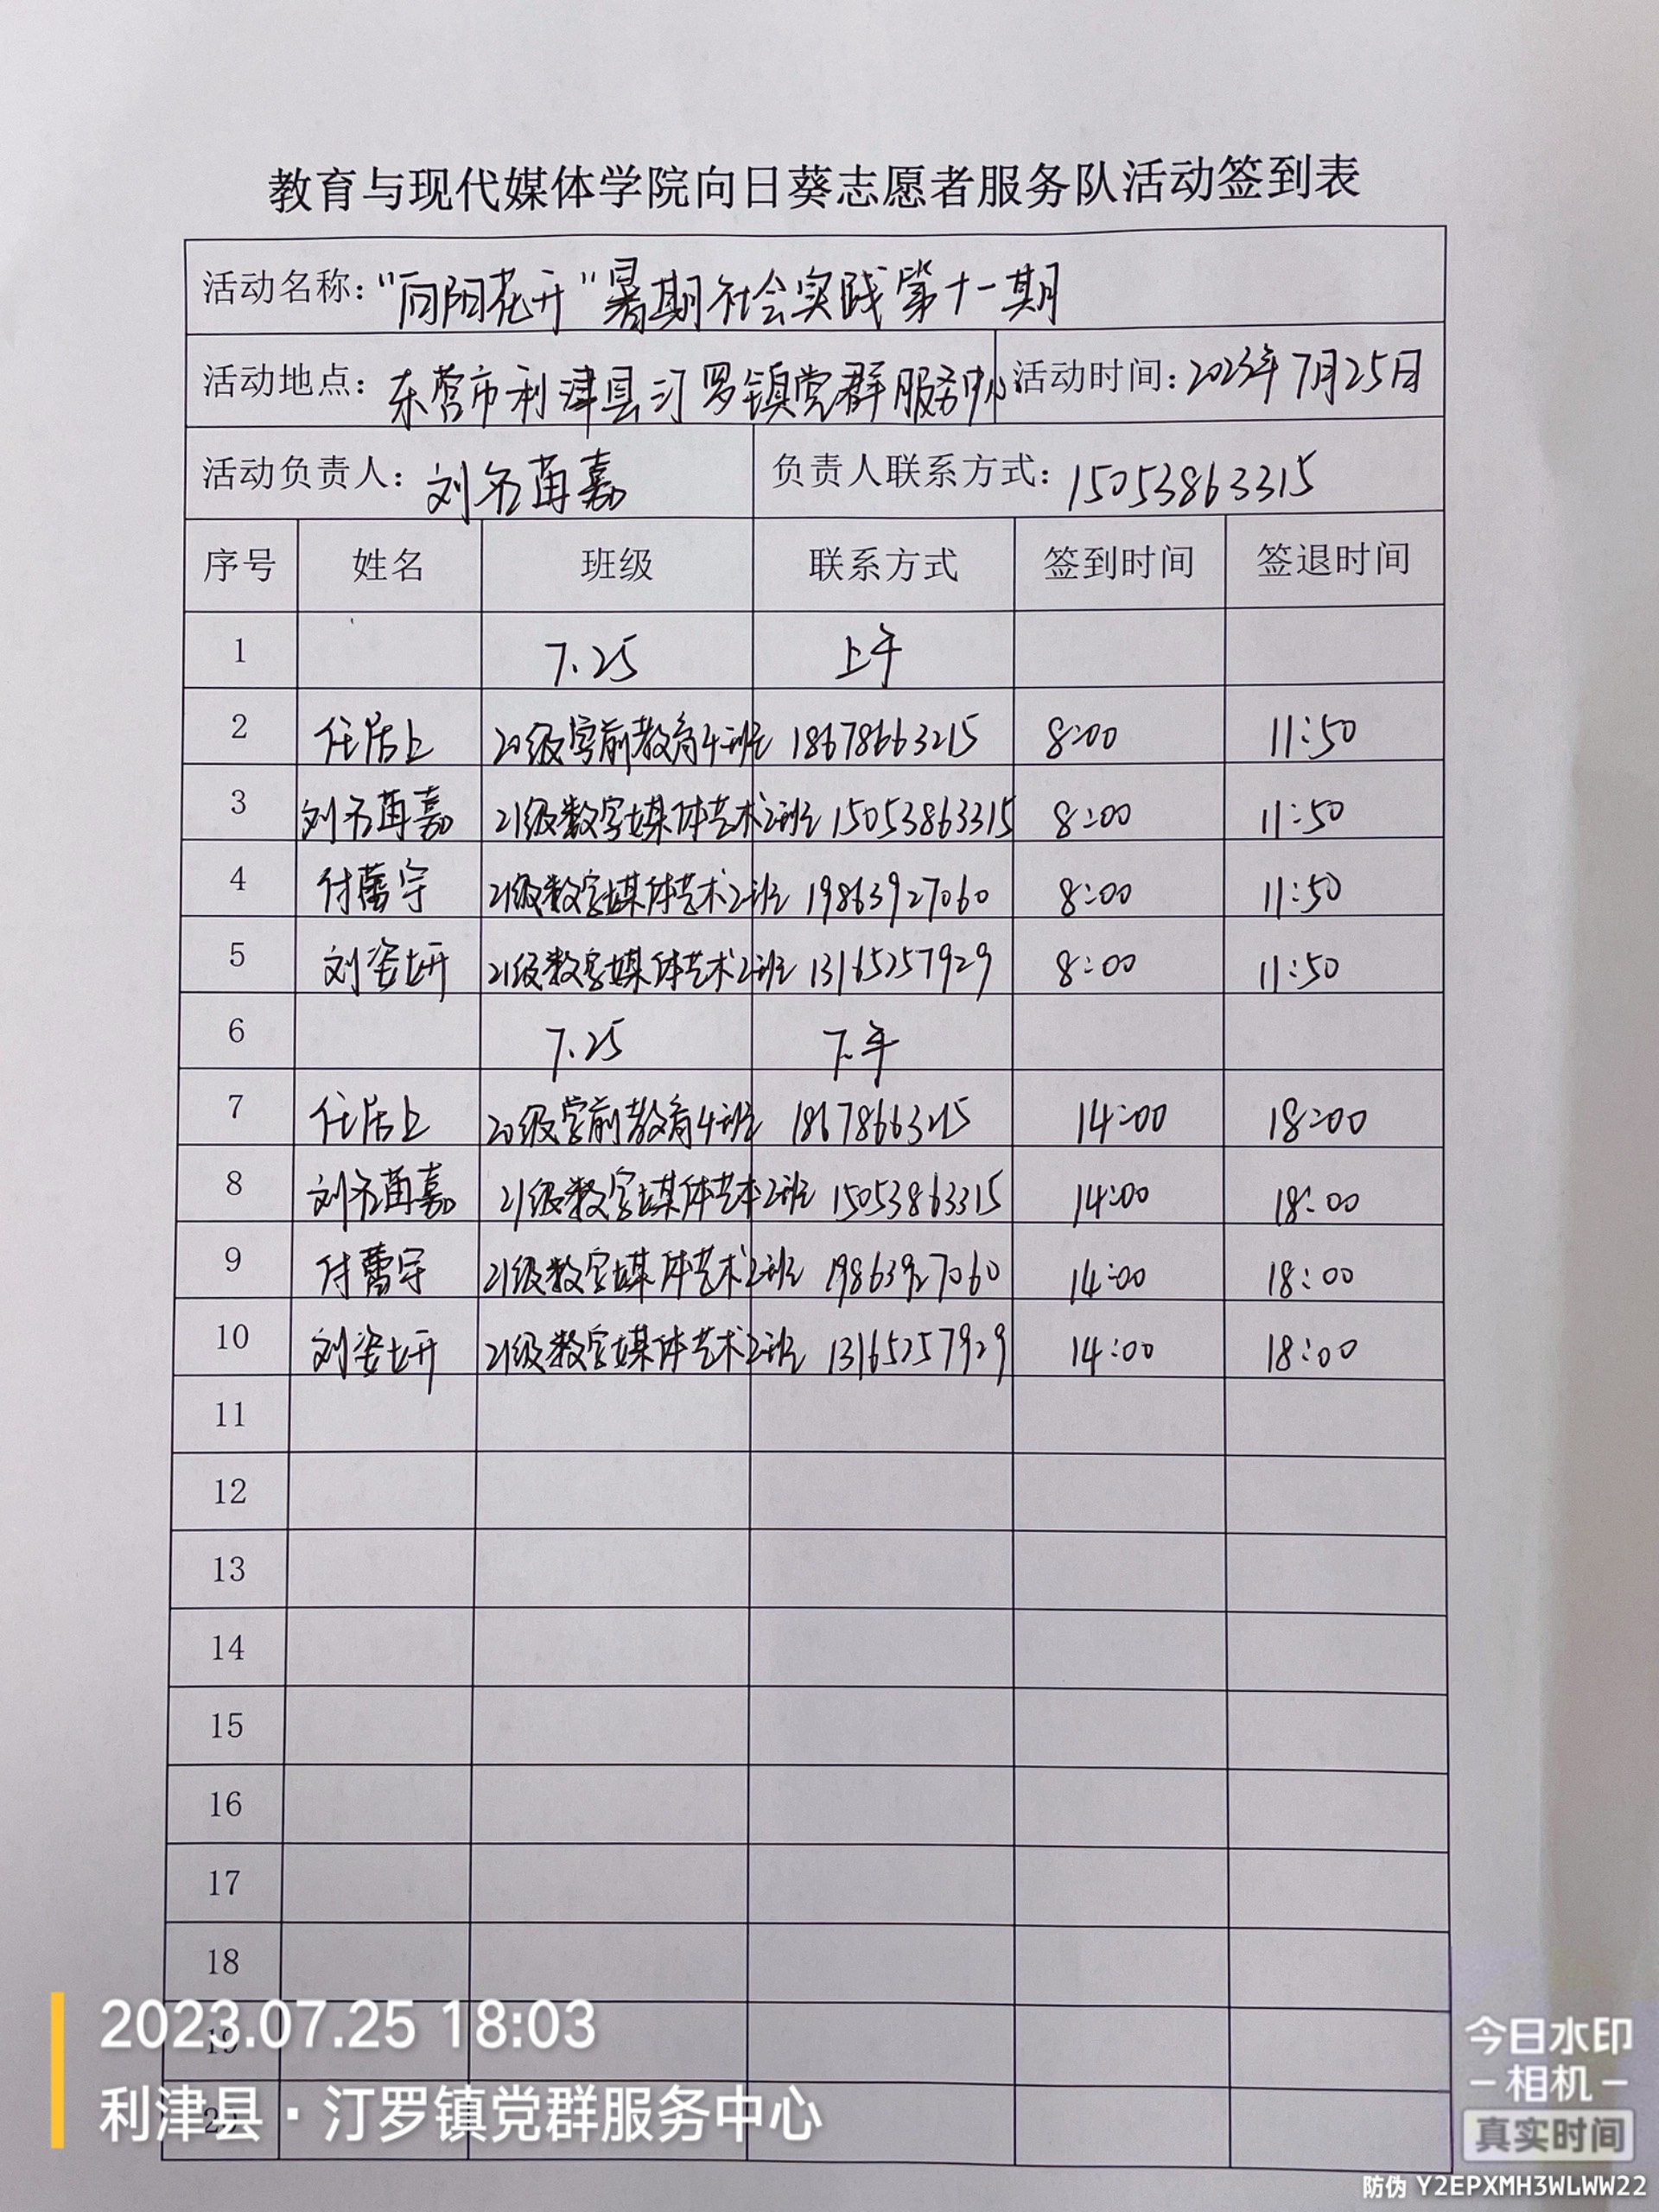 教育与现代媒体学院向日葵志愿者服务队活动签到表
活动名称："向阳花开"暑期社会实践第十一期
活动地点：东营市利津县汀罗镇党群服务中心 活动时间：2023年7月25日
活动负责人：刘名苒嘉 负责人联系方式：15053863315
序号 姓名 班级 联系方式 签到时间 签退时间
1 7.25 上午
2 任居上 20级学前教育4班 18678663215 8:00 11:50
3 刘名苒嘉 21级数字媒体艺术2班 15053863315 8:00 11:50
4 付蕾宇 21级数字媒体艺术2班 19863927060 8:00 11:50
5 刘姿妍 21级数字媒体艺术2班 13165257929 8:00 11:50
6 7.25 下午
7 任居上 20级学前教育4班 18678663215 14:00 18:00
8 刘名苒嘉 21级数字媒体艺术2班 15053863315 14:00 18:00
9 付蕾宇 21级数字媒体艺术2班 19863927060 14:00 18:00
10 刘姿妍 21级数字媒体艺术2班 13165257929 14:00 18:00
11
12
13
14
15
16
17
18
19
20
2023.07.25 18:03
利津县·汀罗镇党群服务中心
今日水印
-相机-
真实时间
防伪 Y2EPXMH3WLWW22